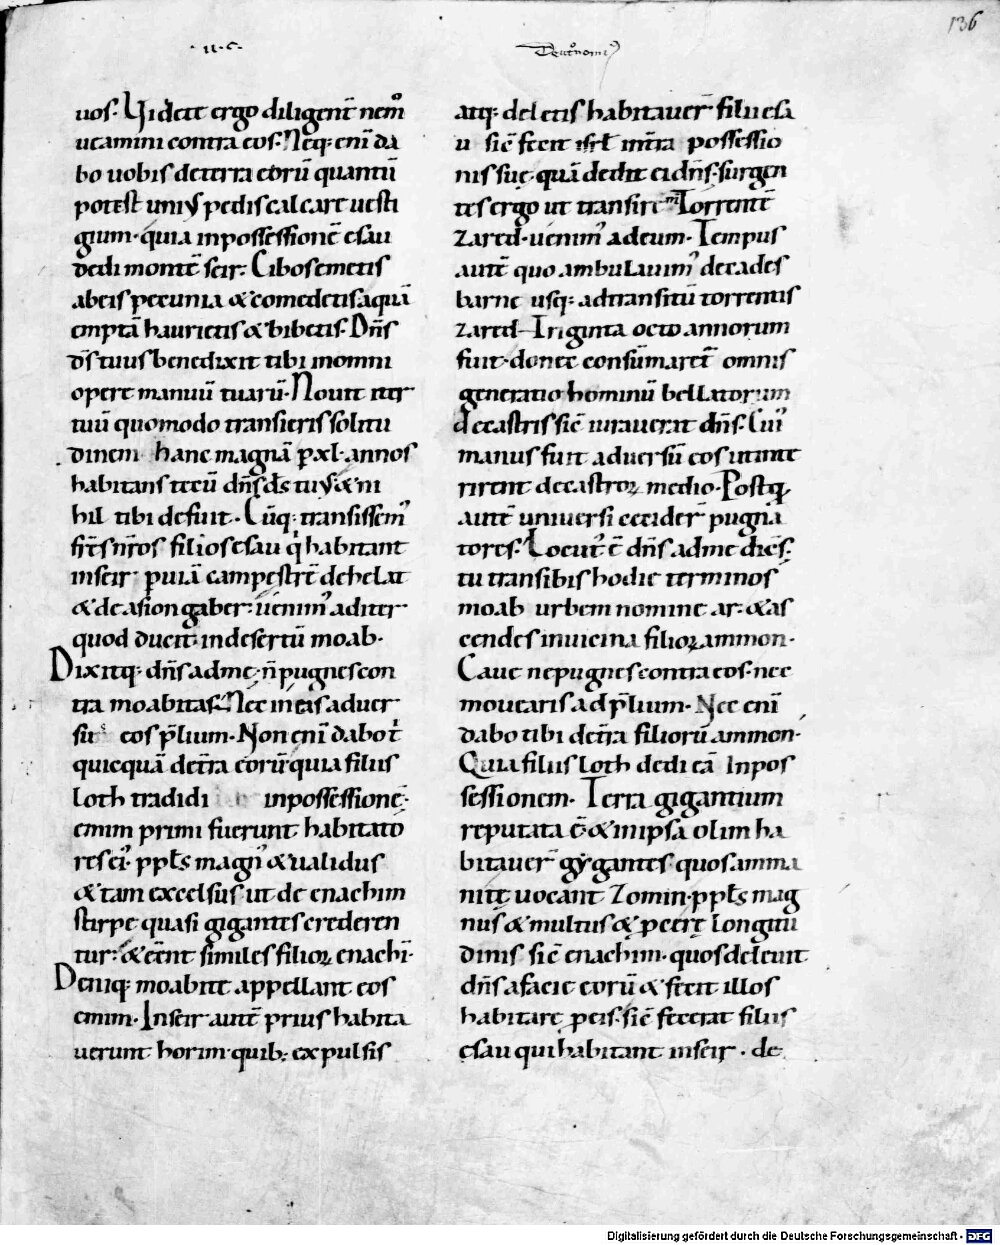 136
·II·C·
Deut̾nomi᷒
uos. Videte ergo diligent̄ nem̊
ueamini contra eos. Neq; eni᷒ da
bo uobis de terra eorū quantū
potest uni᷒ pedis calcare uesti
gium· quia in possessionē esau
dedi montē seir. Cibos emetis
ab eis pecunia & comedetis· aquā
emptā haurietis & bibetis. Dn̄s
ds̄ tuus benedixit tibi in omni
opere manuū tuarū. Nouit iter
tuū quomodo transieris solitu
dinem hanc magnā p̱ xl· annos
habitans tecū dn̄s ds̄ tu᷒ & ni
hil tibi defuit. Cūq; transissem᷒
fr̄s nr̄os filios esau q̇ habitant
in seir p̱ uiā campestrē de helat
& de asion gaber· uenim᷒ ad iter
quod ducit in desertū moab.
Dixitq; dn̄s ad me· n̄ pugnes con
tra moabitas. Nec ineas aduer
sū eos p̄lium. Non enī dabo t̍
quicquā de tr̄a eorū· quia filiis
loth tradidi in possessionē·
emim primi fuerunt habitato
res ei᷒· ppl̄s magn᷒ & ualidus
& tam excelsus ut de enachim
stirpe quasi gigantes crederen
tur· & eēnt similes filioꝝ enachī.
Deniq; moabitę appellant eos
emim. In seir autē prius habita
uerunt horim· quib; expulsis
atq; deletis habitauer̄ filii esa
u sic̄ fecit isrl̄ in tr̄a possessio
nis suę· quā dedit ei dn̄s. surgen
tes ergo ut transirem᷒ Torrentē
Zared· uenim᷒ ad eum. Tempus
autē quo ambulauim᷒ de cades
barne usq; ad transitū torrentis
zared Triginta octo annorum
fuit· donec consūmaret᷒ omnis
generatio hominū bellatorum
de castris sic̄ iurauerat dn̄s. Cui᷒
manus fuit aduersū eos ut inte
rirent de castroꝝ medio. Postꝗ̄
autē uniuersi cecider̄ pugna
tores. Locut᷒ ē dn̄s ad me dicēs.
tu transibis hodie terminos
moab urbem nomine ar· & ac
cedens in uicina filioꝝ ammon.
Caue ne pugnes contra eos· nec
mouearis ad p̄lium. Nec enī
dabo tibi de tr̄a filiorū ammon.
Quia filiis loth dedi eā In pos
sessionem. Terra gigantium
reputata ē & in ipsa olim ha
bitauer̄ gygantes· quos amma
nitę uocant Zomim· ppl̄s mag
nus & multus & p̱cerę longitu
dinis sic̄ enachim· quos deleuit
dn̄s a facie eorū & fecit illos
habitare p̱ eis· sic̄ fecerat filiis
esau qui habitant in seir . de
Digitalisierung gefördert durch die Deutsche Forschungsgemeinschaft - DFG